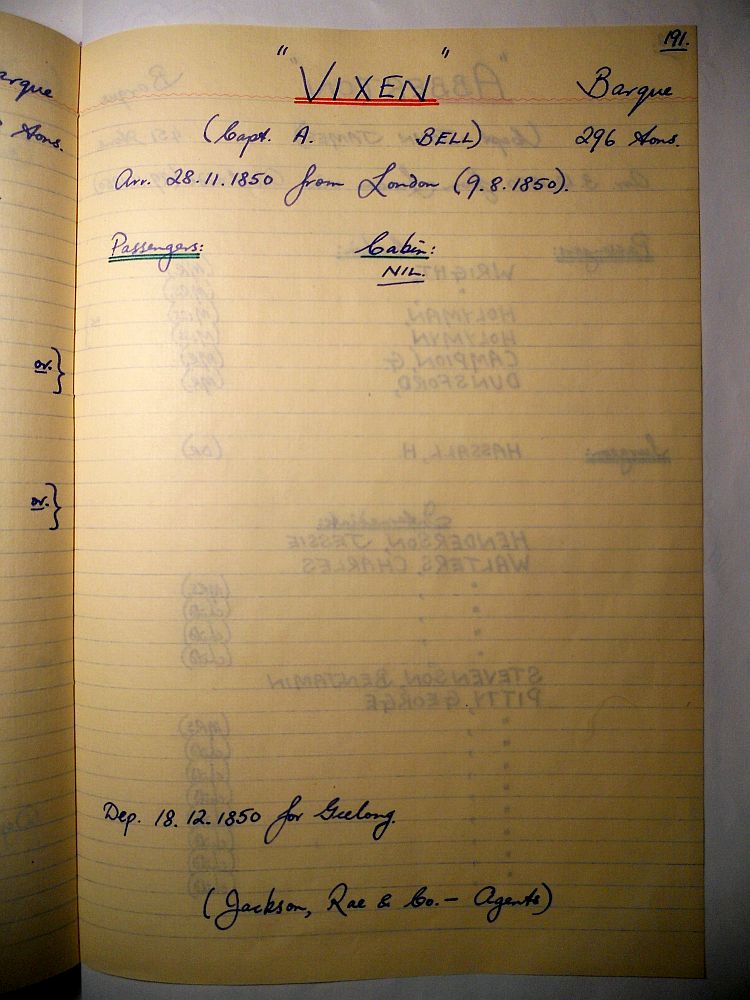 191.
"VIXEN" Barque
(Capt. A. BELL) 296 tons.
Arr. 28.11.1850 from London (9.8.1850).
Passengers: Cabin:
NIL.
Dep. 18.12.1850 for Geelong.
(Jackson, Rae & Co. - Agents)
arque
tons.
or.}
or.}